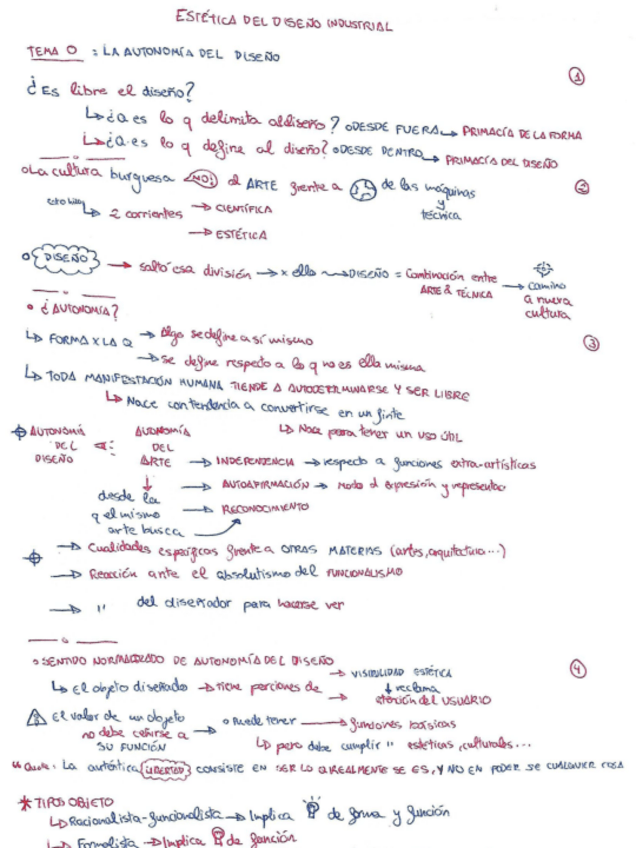 ESTÉTICA DEL DISEÑO INDUSTRIAL
TEMA 0 : LA AUTONOMÍA DEL DISEÑO
①
¿Es libre el diseño?
↳ ¿Q es lo q delimita al diseño? DESDE FUERA → PRIMACÍA DE LA FORMA
↳ ¿Q es lo q define al diseño? DESDE DENTRO → PRIMACÍA DEL DISEÑO
La cultura burguesa el ARTE frente a de las máquinas ②
y
técnica
↳ 2 corrientes → CIENTÍFICA
→ ESTÉTICA
DISEÑO → saltó esa división → x ello DISEÑO = Combinación entre ARTE & TÉCNICA → camino a nueva cultura
• ¿AUTONOMÍA? ③
↳ FORMA X LA Q → Algo se define a sí mismo
→ se define respecto a lo q no es ella misma
↳ TODA MANIFESTACIÓN HUMANA TIENDE A AUTODETERMINARSE Y SER LIBRE
↳ Nace con tendencia a convertirse en un
↳ Nace para tener un uso útil
AUTONOMÍA DEL DISEÑO AUTONOMÍA DEL ARTE → INDEPENDENCIA → respecto a funciones extra-artísticas
→ AUTOAFIRMACIÓN → modo d expresión y
→ RECONOCIMIENTO
desde la
q el mismo
arte busca
→ Cualidades específicas frente a OTRAS MATERIAS (artes, arquitectura...)
→ Reacción ante el absolutismo del FUNCIONALISMO
→ " del diseñador para hacerse ver
SENTIDO DE AUTONOMÍA DEL DISEÑO ④
↳ El objeto diseñado → tiene de → VISIBILIDAD ESTÉTICA
↓ reclama
→ atención del USUARIO
⚠ El valor de un objeto
no debe ceñirse a
SU FUNCIÓN
→ Puede tener → funciones básicas
↳ pero debe cumplir " estéticas, culturales...
La auténtica LIBERTAD CONSISTE EN SER LO Q REALMENTE SE ES, Y NO EN PODER SE CUALQUIER COSA
* TIPOS OBJETO
↳ Racionalista-funcionalista → Implica de forma y función
↳ Formalista → Implica de función